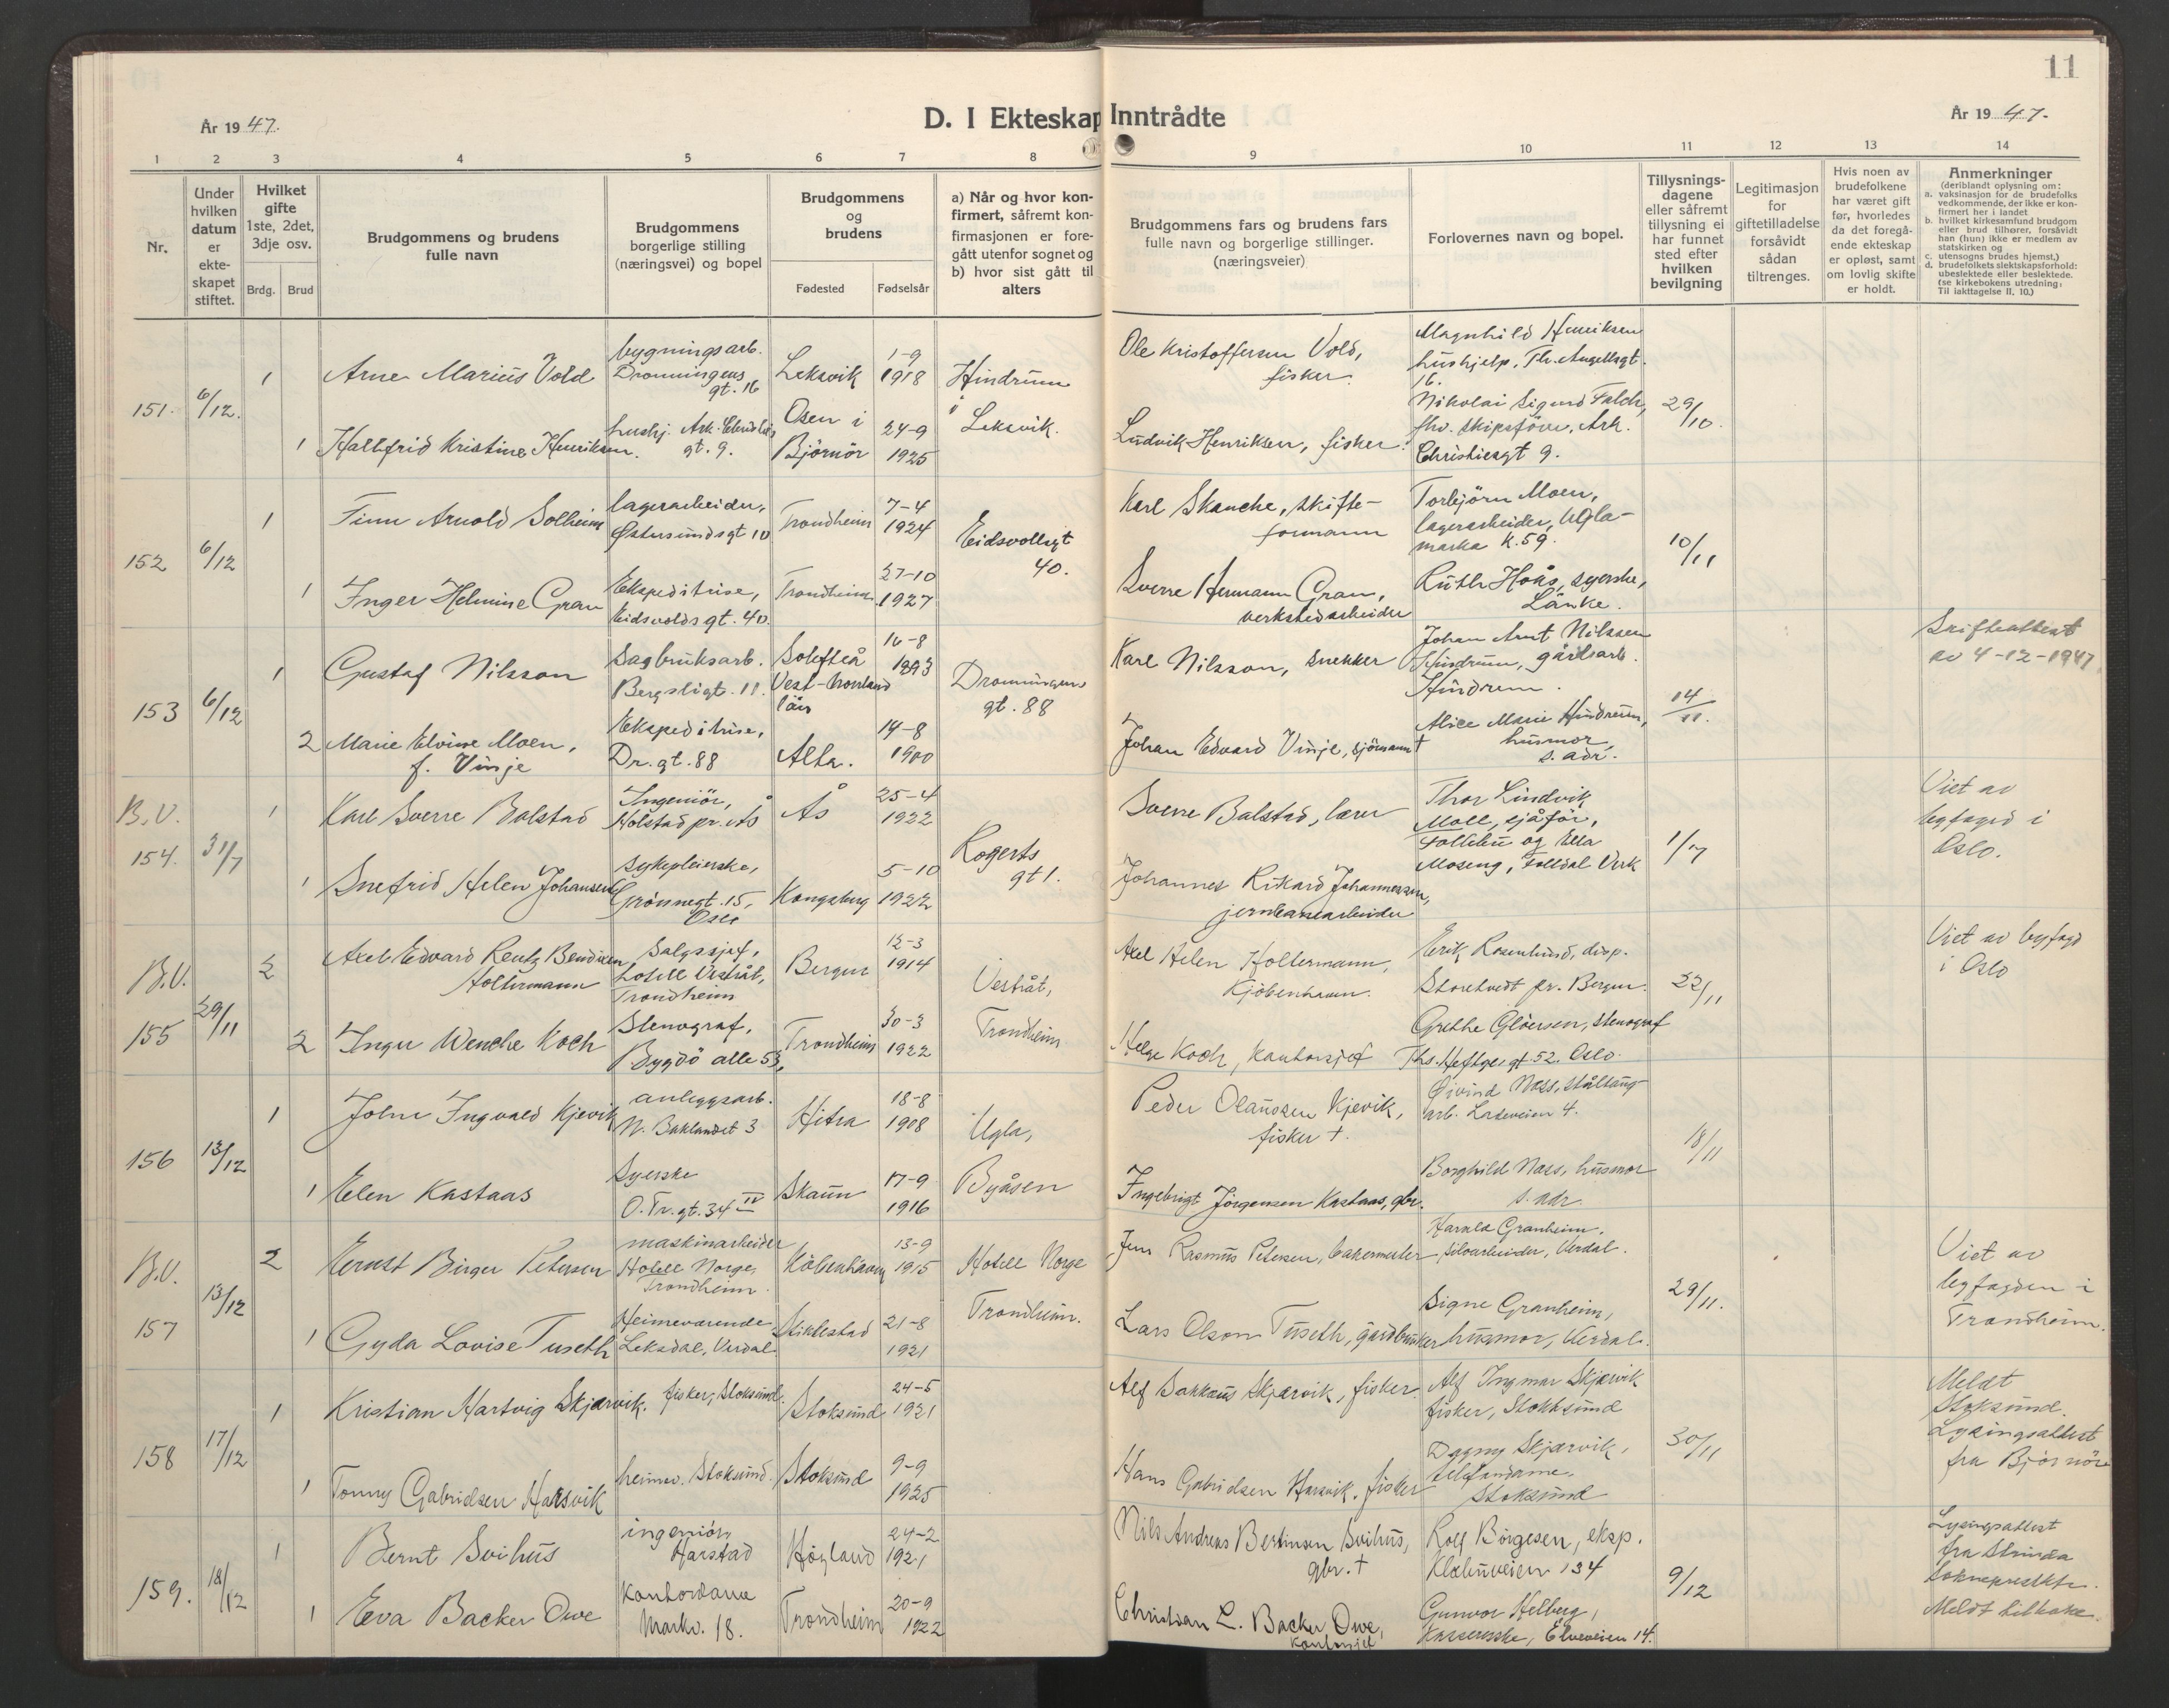 11
År 1947.
D. I Ekteskap Inntrådte
År 1947.
1 2 3 4 5 6 7 8 9 10 11 12 13 14
Nr.
Under
hvilken
datum
er
ekte-
skapet
stiftet.
Hvilket
gifte
1ste, 2det,
3dje osv.
Brdg. Brud
Brudgommens og brudens
fulle navn
Brudgommens
borgerlige stilling
(næringsvei) og bopel
Brudgommens
og
brudens
Fødested Fødselsår
a) Når og hvor kon-
firmert, såfremt kon-
firmasjonen er fore-
gått utenfor sognet og
b) hvor sist gått til
alters
Brudgommens fars og brudens fars
fulle navn og borgerlige stillinger.
(næringsveier)
Forlovernes navn og bopel.
Tillysnings-
dagene
eller såfremt
tillysning ei
har funnet
sted efter
hvilken
bevilgning
Legitimasjon
for
giftetilladelse
forsåvidt
sådan
tiltrenges.
Hvis noen av
brudefolkene
har været gift
før, hvorledes
da det foregå-
ende ekteskap
er opløst, samt
om lovlig skifte
er holdt.
Anmerkninger
(deriblandt oplysning om:
a. vaksinasjon for de brudefolks
vedkommende, der ikke er kon-
firmert her i landet
b. hvilket kirkesamfund brudgom
eller brud tilhører, forsåvidt
han (hun) ikke er medlem av
statskirken og
c. utensogns brudes hjemst.)
d. brudefolkets slektskapsforhold:
ubeslektede eller beslektede.
(se kirkebokens utredning:
Til iakttagelse II. 10.)
151. 6/12.
1 Arne Marius Vold
bygningsarb.
Dronningens
gt. 16
Leksvik
1-9
1918
Hindrum
i Leksvik.
Ole Kristoffersen Vold,
fisker.
Magnhild Henriksen
hushjelp, Th. Angellsgt.
16.
1 Hallfrid Kristine Henriksen.
hushj. Ark. Christies
gt. 9.
Osen i
Björnör
24-9
1925
Ludvik Henriksen, fisker.
Nikolai Sigurd Falch,
fhv. skipsförer, Ark.
Christiesgt 9.
29/10.
152 6/12
1 Finn Arnold Solheim
lagerarbeider,
Østersundsgt 10
Trondheim
7-4
1924
Eidsvollsgt
40.
Karl Skanche, skifte-
formann
Torbjörn Moen,
lagerarbeider, Ugla-
marka K.59.
10/11
1 Inger Helmine Gran
Ekspeditrise,
Eidsvoldsgt. 40.
Trondheim
27-10
1927
Sverre Hermann Gran,
verkstedarbeider
Ruth Hoås, syerske,
Lånke.
153 6/12
1 Gustaf Nilsson
Sagbruksarb.
Bergsligt. 11.
Solefteå
Vest-Norrland
län
16-8
1893
Dronningens
gt. 88
Karl Nilsson, snekker
Johan Arnt Nilssen
Hindrum, gårdsarb.
Hindrem.
14/11.
Skifteattest
av 4-12-1947
2 Marie Elvine Moen,
f. Vinje
Ekspeditrise,
Dr. gt. 88
Alta.
14-8
1900
Johan Edvard Vinje, sjömann †
Alice Marie Hindrum,
husmor,
s. adr.
B.V.
154. 31/7
1 Karl Sverre Balstad
Ingeniör,
Holstad pr. Ås
Ås
25-4
1922
Rogerts
gt 1.
Sverre Balstad, lærer
Thor Lindvik
Moll, sjåför,
Follebu og Ella
Moseng, Folldal Verk
1/7
Viet av
byfogd i
Oslo.
1 Snefrid Helen Johansen
Sykepleierske,
Grönnegt. 15,
Oslo
Kongsberg
5-10
1922
Johannes Rikard Johannessen,
jernbanearbeider
B.V.
155 29/11
2 Axel Edvard Rentz Bendixen
Holtermann
Salgssjef,
Hotell Vestråt,
Trondheim
Bergen
12-3
1914
Vestråt,
Trondheim
Axel Helen Holtermann,
Kjöbenhavn.
Erik Rosenlund, disp.
Storetvedt pr. Bergen.
22/11
Viet av byfogd
i Oslo
2 Inger Wenche Koch
Stenograf,
Bygdö alle 53,
Trondheim
30-3
1922
Helge Koch, kontorsjef
Grethe Glöersen, stenograf
Ths. Heftyes gt. 52. Oslo.
156 13/12
1 John Ingvald Kjevik
anleggsarb.
N. Baklandet 3
Hitra
18-8
1908
Ugla,
Byåsen
Peder Olaussen Kjevik,
fisker †.
Öivind Næss, ståltaug-
arb. Ladeveien 4.
18/11
1 Elen Kastaas
Syerske
O. Tr. gt. 34 IV
Skaun
17-9
1916
Ingebrigt Jörgensen Kastaas, gbr.
Borghild Næss, husmor
s. adr.
B.V.
157 13/12
2 Ernst Birger Petersen
maskinarbeider
Hotell Norge,
Trondheim.
Köbenhavn
13-9
1915
Hotell Norge
Trondheim.
Jens Rasmus Petersen, bakermester
Harald Granheim,
siloarbeider, Verdal.
29/11.
Viet av
byfogden i
Trondheim.
1 Gyda Lovise Tuseth
Heimeværende
Leksdal, Verdal.
Stiklestad
21-8
1921
Lars Olson Tuseth, gardbruker
Signe Granheim,
husmor, Verdal.
158 17/12
1 Kristian Hartvig Skjærvik.
fisker, Stoksund.
Stoksund
24-5
1921
Alf Bakkaus Skjærvik, fisker.
Alf Ingmar Skjærvik
fisker, Stokksund
30/11
Meldt
Stoksund.
Lysingsattest
fra Björnör
1 Tonny Gabrielsen Harsvik
heimev. Stoksund.
Stoksund
9-9
1925
Hans Gabrielsen Harsvik, fisker
Dagny Skjærvik,
telefondame,
Stoksund
159. 18/12
1 Bernt Svihus
ingeniör,
Harstad
Högland
24-2
1921
Nils Andreas Bertinsen Svihus,
gbr. †
Rolf Börgesen, eksp.
Klæbuveien 134
9/12
Lysingsattest
fra Strinda
sokneprestktr.
Meldt tilbake.
1 Eva Backer Owe
Kontordame
Markv. 18.
Trondheim
20-9
1922
Christian L. Backer Owe,
kontorsjef
Gunvor Helberg,
Kassererske, Elveveien 14.